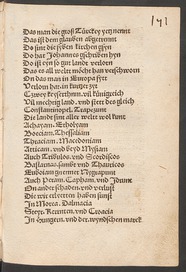 191
Das man die groß Türckey yetz nennt
Das ist dem glauben abgetrennt
Do sint die syben kirchen gsyn
Do hat Johannes gschriben hyn
So ist eyn so gut landt verlorn
Das es all welt möcht han verschworn
On das man in Europa sytt
Verlorn hat in kurtzer zyt
Zwey keyserthům, vil künigrich
Vil mechtig land, vnd stett des glich
Constantinopel, Trapezunt
Die landt sint aller welt wol kunt
Achayam, Etholyam
Boeciam, Thessaliam
Thraciam, Macedoniam
Atticam, vnd beyd Mysiam
Auch Tribulos, vnd Scordiscos
Bastarnas, sambt vnd Thauricos
Euboiam genennt Nygrapunt
Auch Peram, Capham, vnd Idrunt
On ander schaden, vnd verlust
Die wir erlitten haben sunst
In Morea, Dalmacia
Steyr, Kernten, vnd Croacia
In Hungern, vnd der wyndschen marck